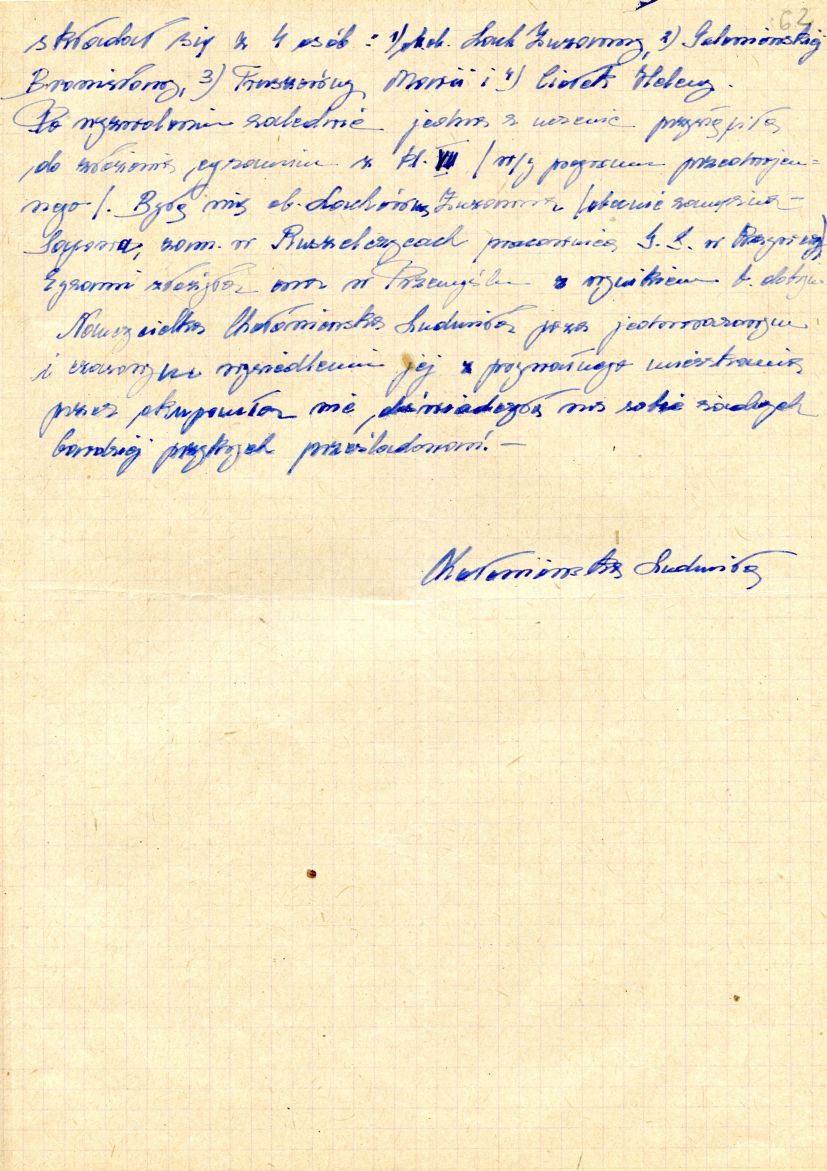 62
składał się z 4 osób: 1) ob. Lach Zuzanny, 2)
Bronisławy, 3) Marii i 4) Ciołek Heleny.
Po wyzwoleniu zaledwie jedna z uczenic przystąpiła
do złożenia egzaminu z kl. VII / w/g programu przedwojen-
nego /. Była nią ob. Lachówna Zuzanna /obecnie zamężna -
zam. w Ruszelczycach pracownica G. S. w
Egzamin złożyła ona w Przemyślu z wynikiem b. dobrym
Nauczycielka Chołoniewska Ludwika poza jednorazowym
i czasowym wysiedleniem jej z poznańskiego mieszkania
przez okupanta nie doświadczyła na sobie żadnych
bardziej przykrych prześladowań. -
Chołoniewska Ludwika